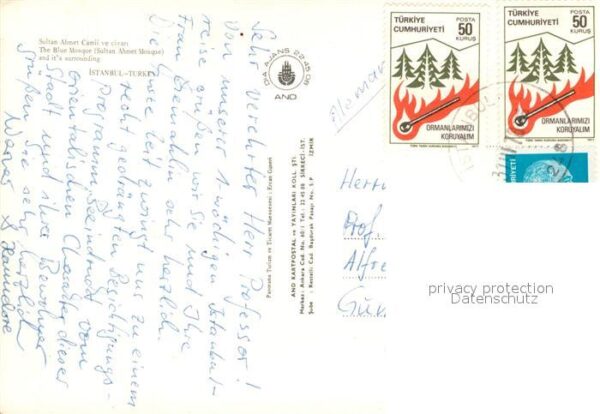 Sultan Ahmet Camii ve civarı
The Blue Mosque (Sultan Ahmet Mosque)
and it's surrounding
ISTANBUL-TURKEY
Sehr verehrter Herr Professor!
Von unserer 1 wöchigen Istanbul-
reise grüßen wir Sie und Ihre
Frau Gemahlin sehr herzlich.
Die Zeit zwingt uns zu einem
gedrängten Besichtigungs-
programm. Beeindruckt vom
orientalischen Charakter dieser
Stadt und ihrer Bewohner
grüßen Sie sehr herzlich
Werner
AND
Panorama Turizm ve Ticaret Müessesesi : Ercan Gigseri
AND KARTPOSTAL ve YAYINLARI KOLL. ŞTİ.
Merkez: Ankara Cad. No. 60/1 Tel: 22 45 08 SİRKECİ-İST.
Şube : Rentelli Cad. Başdurak Pasajı No. 5 P İZMİR
Herrn
Prof.
Alfre
TÜRKİYE
CUMHURİYETİ
POSTA
50
KURUŞ
ORMANLARIMIZI
KORUYALIM
TÜRKİYE
CUMHURİYETİ
POSTA
50
KURUŞ
ORMANLARIMIZI
KORUYALIM
privacy protection
Datenschutz